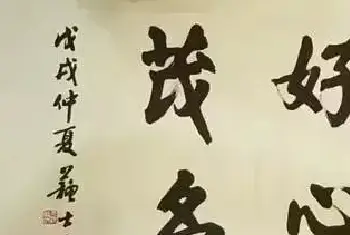 好心
茂名
戊戌仲夏蘇士